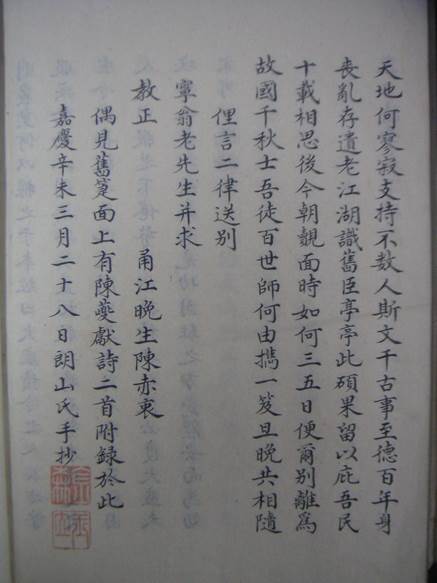 天地何寥寂支持不数人斯文千古事至德百年身
喪亂存遺老江湖識舊臣亭亭此碩果留以庇吾民
十載相思後今朝覿面時如何三五日便爾別離爲
故國千秋士吾徒百世師何由攜一笈旦晩共相隨
俚言二律送別
寧翁老先生并求
教正 甬江晩生陳赤衷
偶見舊箑面上有陳夔獻詩二首附錄於此
嘉慶辛未三月二十八日朗山氏手抄